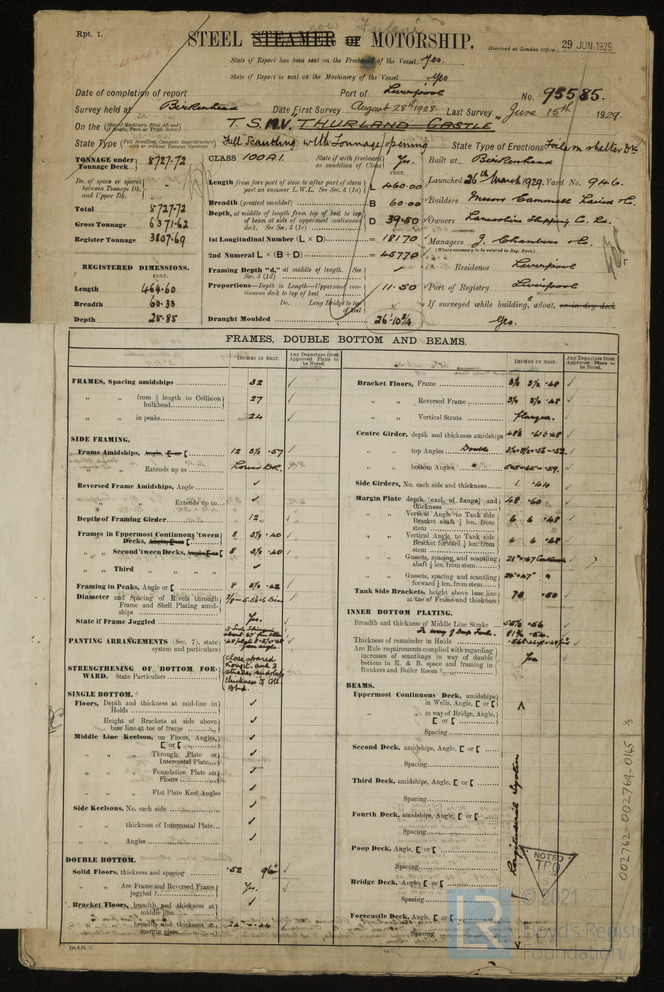 Rpt. 1.
STEEL STEAMER or MOTORSHIP.
Received at London Office 29 JUN.1929
State if Report has been sent on the Freeboard of the Vessel Yes.
State if Report is sent on the Machinery of the Vessel Yes
Date of completion of report Port of Liverpool No. 93585.
Survey held at Birkenhead Date First Survey August 28th 1928 Last Survey June 15th 1929.
On the T.S.M.V. "THURLAND CASTLE"
State Type Full Scantling with Tonnage opening State Type of Erections
TONNAGE under Tonnage Deck 5727.72
Do. of space or spaces between Tonnage Dk. and Upper Dk.
Total 5727.72
Gross Tonnage 6371.62
Register Tonnage 3807.69
REGISTERED DIMENSIONS.
FEET.
Length 464.60
Breadth 60.33
Depth 25.85
CLASS 100A1. State if with freeboard as condition of Class Yes.
FEET.
Length from fore part of stem to after part of stern post on summer L.W.L. See Sec. 3 (1a) L 460.00
Breadth (greatest moulded) B 60.00
Depth, at middle of length from top of keel to top of beam at side of uppermost continuous deck. See Sec. 3 (1c) D 39.50
1st Longitudinal Number (L × D) = 18170
2nd Numeral L × (B + D) = 45770
Framing Depth "d," at middle of length. See Sec. 3 (1d)
Proportions—Depth to Length—Uppermost continuous deck to top of keel 11.50
Do. Long Bridge to top of keel
Draught Moulded 26' 10¾
Built at Birkenhead
Launched 26th March 1929. Yard No. 946.
Builders Messrs Cammell Laird & Co.
Owners Lancashire Shipping Co. Ld.
Managers J. Chambers & Co.
(Where necessary to be entered in Reg. Book)
Residence Liverpool
Port of Registry Liverpool
If surveyed while building, afloat, or in dry dock
Yes.
FRAMES, DOUBLE BOTTOM AND BEAMS.
INCHES IN SHIP.
Any Departure from Approved Plans to be Noted.
INCHES IN SHIP.
Any Departure from Approved Plans to be Noted.
FRAMES, Spacing amidships 32
" " from ⅕ length to Collision bulkhead 27
" " in peaks 24
SIDE FRAMING.
Frame Amidships, Angle, E or [ 12 3½ .57
" " Extends up to Lower Dk.
Reversed Frame Amidships, Angle
" " Extends up to
Depth of Framing Girder 12
Frames in Uppermost Continuous 'tween Decks, Angle, E or [ 8 3½ .40
" Second 'tween Decks, Angle, E or [ 8 3½ .40
" Third " "
Framing in Peaks, Angle or [ 8 3½ .42
Diameter and Spacing of Rivets through Frame and Shell Plating amidships
State if Frame Joggled Yes.
PANTING ARRANGEMENTS (Sec. 7), state system and particulars
STRENGTHENING OF BOTTOM FORWARD. State Particulars
SINGLE BOTTOM.
Floors, Depth and thickness at mid-line in Holds
" Height of Brackets at side above base line at toe of frame
Middle Line Keelson, on Floors, Angles, E or [
" " Through Plate or Intercostal Plate
" " Foundation Plate on Floors
" " Flat Plate Keel Angles
Side Keelsons, No. each side
" " thickness of Intercostal Plate
" " Angles
DOUBLE BOTTOM.
Solid Floors, thickness and spacing .52 96"
" " Are Frame and Reversed Frame joggled? Yes.
Bracket Floors, breadth and thickness at middle line
" " breadth and thickness at margin plate
Bracket Floors, Frame
" " Reversed Frame
" " Vertical Struts Flanges.
Centre Girder, depth and thickness amidships
" " top Angles Double
" " bottom Angles "
Side Girders, No. each side and thickness 1 .44
Margin Plate depth (excl. of flange) and thickness 48 .60
" " Vertical Angle to Tank side Bracket abaft ¼ len. from stem 6 6 .48
" " Vertical Angle to Tank side Bracket forward ¼ len. from stem 6 6 .48
" " Gussets, spacing and scantling abaft ¼ len. from stem
" " Gussets, spacing and scantling forward ¼ len. from stem
Tank Side Brackets, height above base line at toe of Frame and thickness 70 .50
INNER BOTTOM PLATING.
Breadth and thickness of Middle Line Strake
In way of Deep Tank.
Thickness of remainder in Holds
Are Rule requirements complied with regarding increases of scantlings in way of double bottom in E. & B. space and framing in Bunkers and Boiler Room? Yes
BEAMS.
Uppermost Continuous Deck, amidships in Wells, Angle, E or [
" " in way of Bridge, Angle, E or [
Spacing
Second Deck, amidships, Angle, E or [
Spacing
Third Deck, amidships, Angle, E or [
Spacing
Fourth Deck, amidships, Angle, E or [
Spacing
Poop Deck, Angle, E or [
Spacing
Bridge Deck, Angle, E or [
Spacing
Forecastle Deck, Angle, E or [
Spacing
Longitudinal System
NOTED
TPO
002762-002769-0145 1/3
© 2021
Lloyd's Register
Foundation